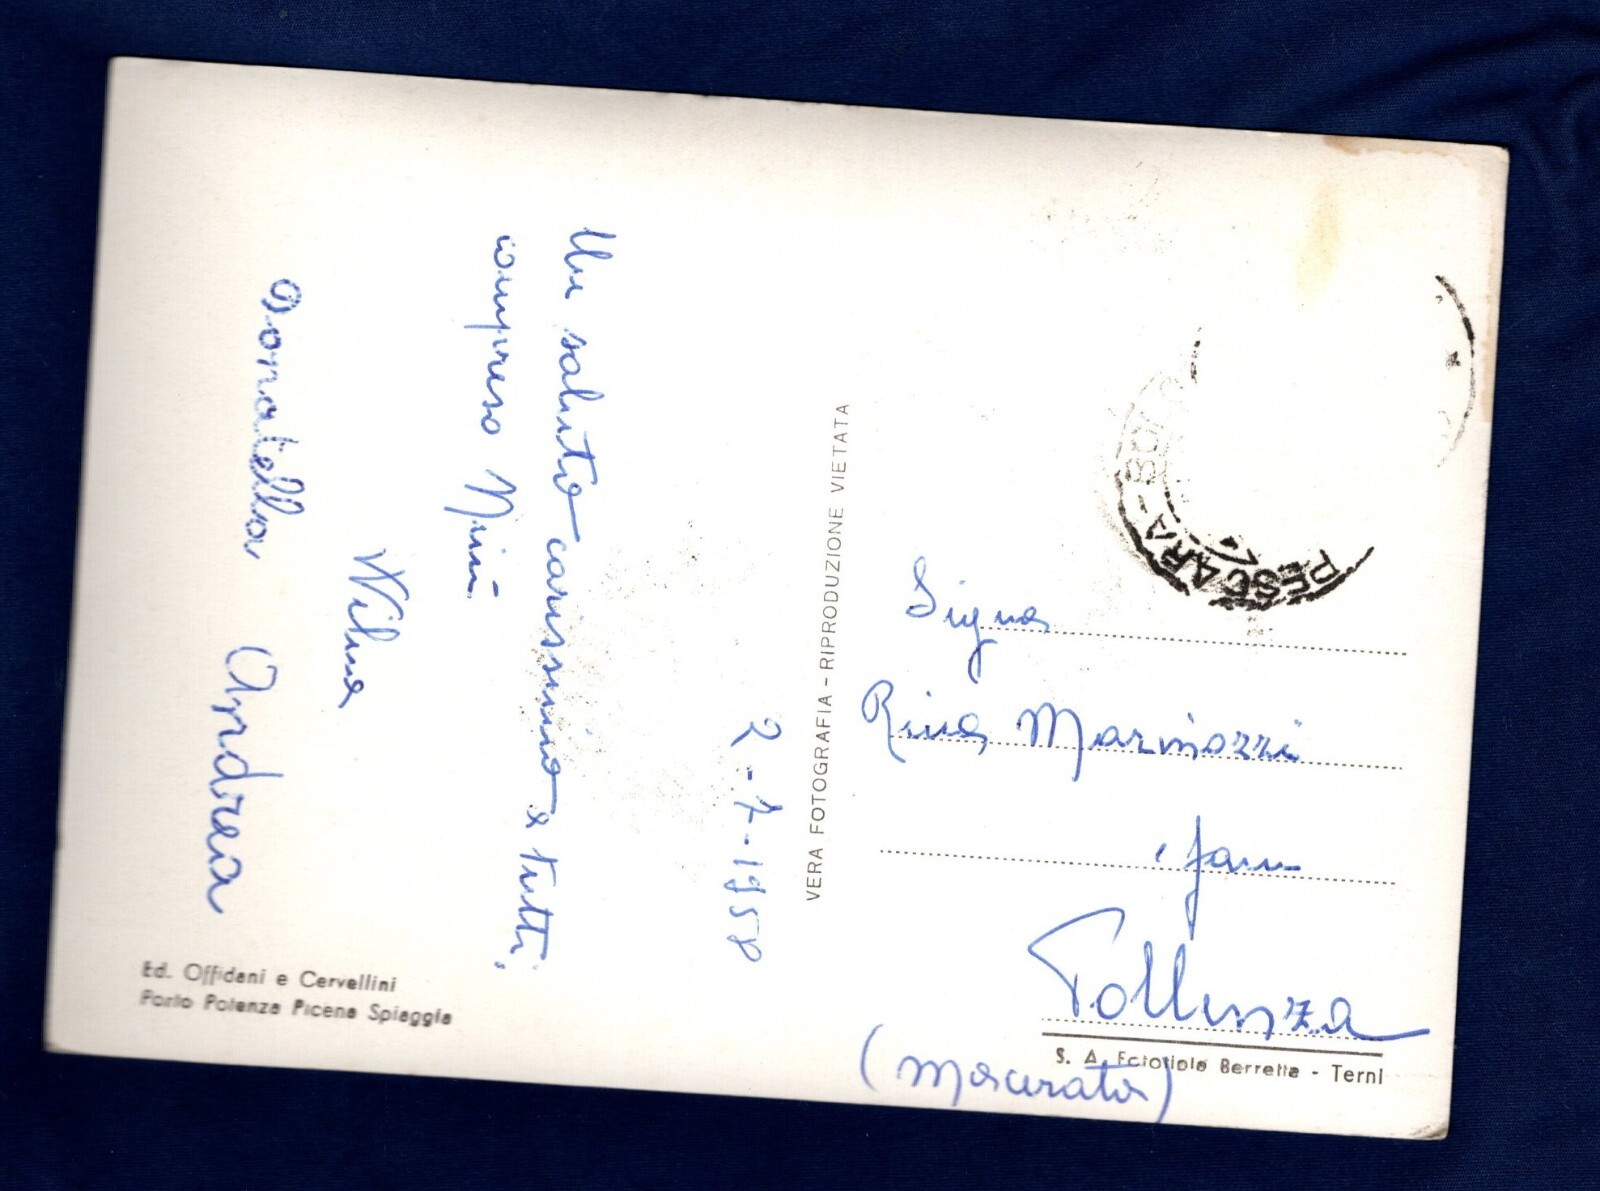 2-7-1958
Un saluto carissimo a tutti,
compreso Ninì
Wilma
Donatella
Andrea
Ed. Offidani e Cervellini
Porto Potenza Picena Spiaggia
VERA FOTOGRAFIA - RIPRODUZIONE VIETATA
PESCARA -
Sig.na
Rina Marinozzi
e fam
Pollenza
(Macerata)
S. A. Fototipia Berretta - Terni